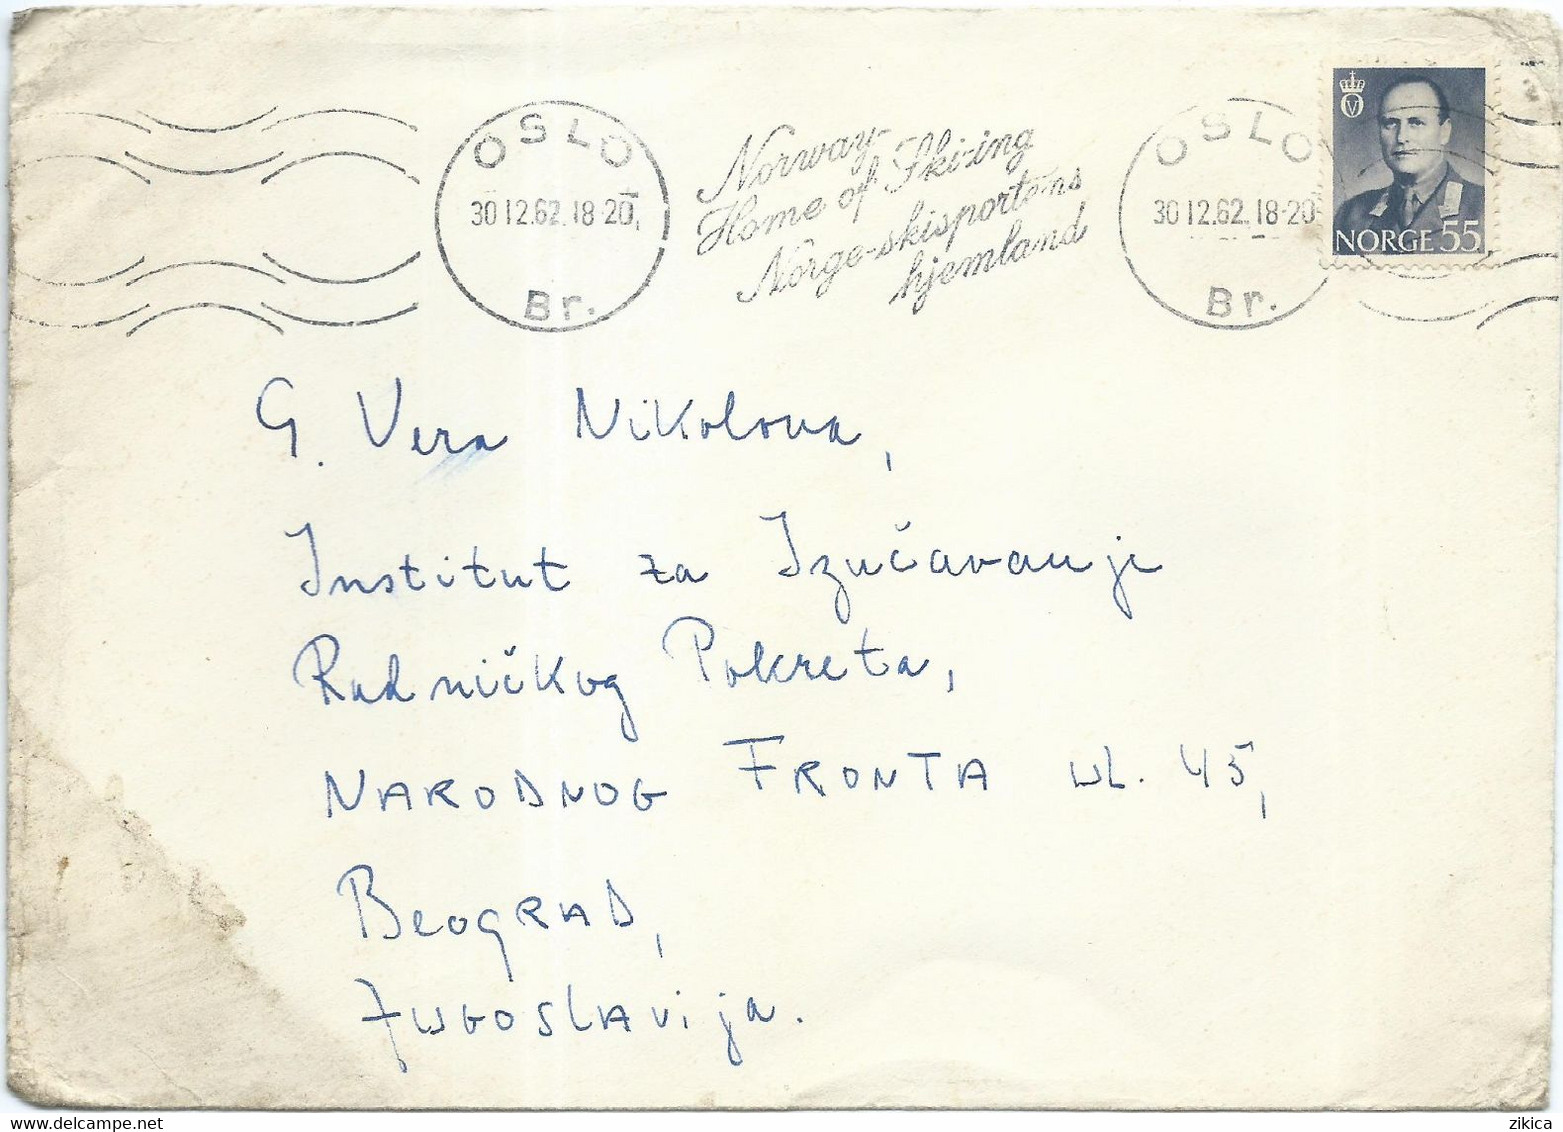 OSLO
30 12.62.18-20
Br.
Norway-
Home of Ski-ing
Norge-skisportens
hjemland
OSLO
30 12.62.18-20
Br.
V
NORGE 55
G. Vera Nikolova,
Institut za Izučavanje
Radničkog Pokreta,
NARODNOG FRONTA ul. 45,
BeogRAD,
JugoslAvija.
delcampe.net
zikica